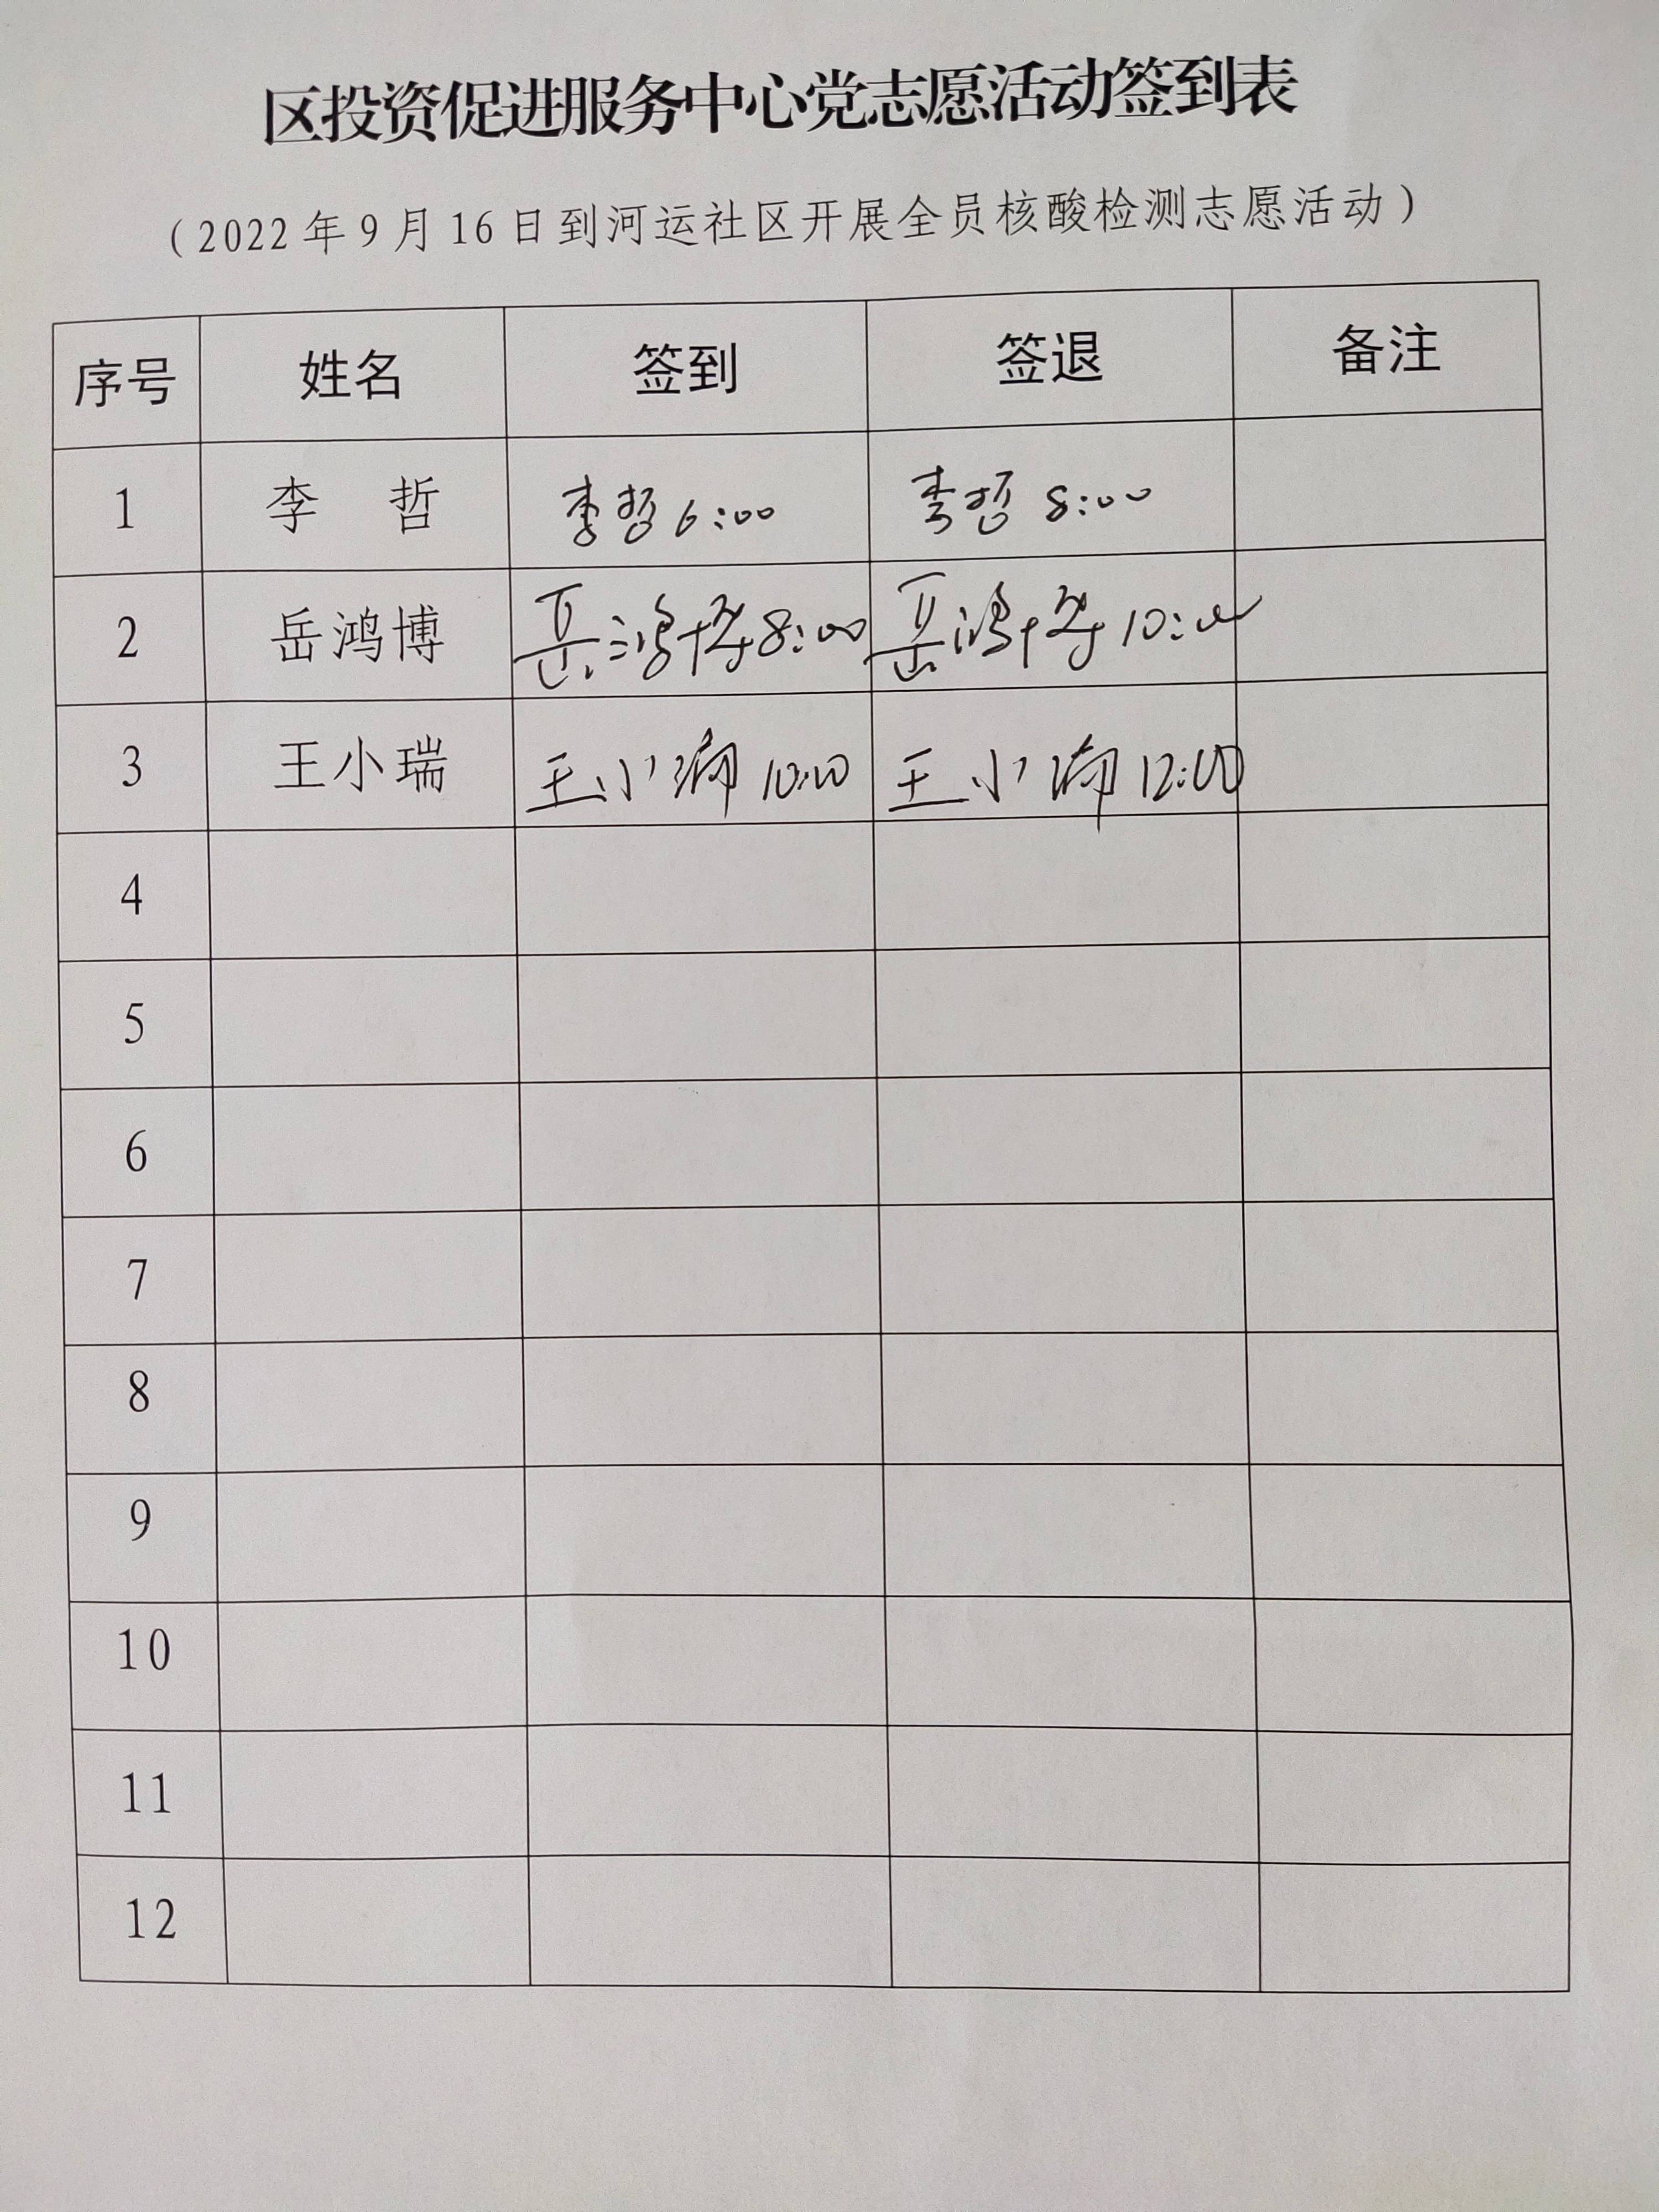 区投资促进服务中心党志愿活动签到表
（2022年9月16日到河运社区开展全员核酸检测志愿活动）
序号 姓名 签到 签退 备注
1 李 哲 李哲 6:00 李哲 8:00
2 岳鸿博 岳鸿博 8:00 岳鸿博 10:00
3 王小瑞 王小瑞 10:00 王小瑞 12:00
4
5
6
7
8
9
10
11
12